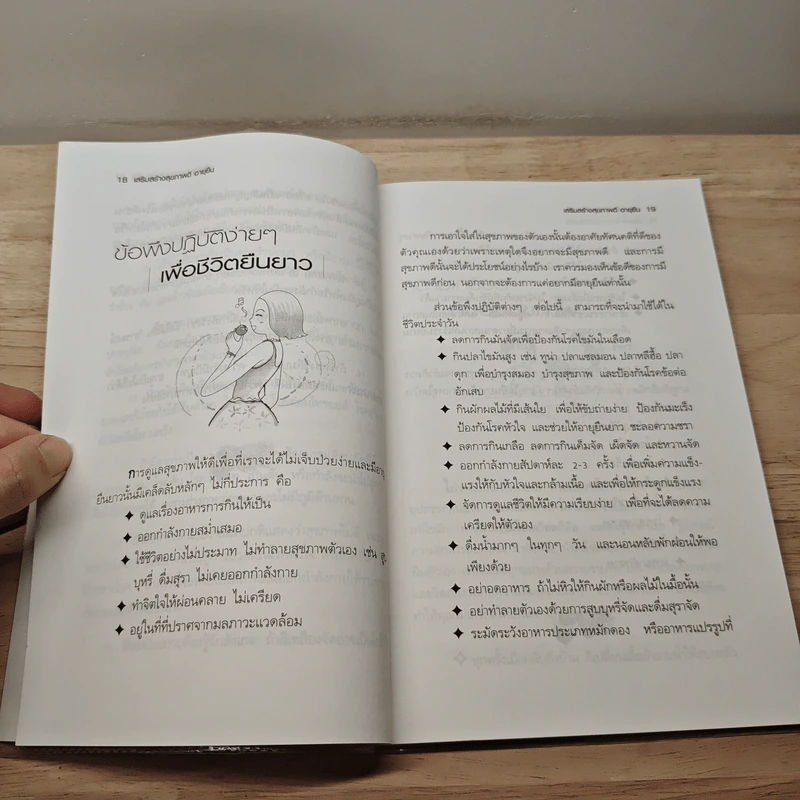 18 เสริมสร้างสุขภาพดี อายุยืน
ข้อพึงปฏิบัติง่ายๆ
เพื่อชีวิตยืนยาว
การดูแลสุขภาพให้ดีเพื่อที่เราจะได้ไม่เจ็บป่วยง่ายและมีอายุ
ยืนยาวนั้นมีเคล็ดลับหลักๆ ไม่กี่ประการ คือ
✦ ดูแลเรื่องอาหารการกินให้เป็น
✦ ออกกำลังกายสม่ำเสมอ
✦ ใช้ชีวิตอย่างไม่ประมาท ไม่ทำลายสุขภาพตัวเอง เช่น สู
บุหรี่ ดื่มสุรา ไม่เคยออกกำลังกาย
✦ ทำจิตใจให้ผ่อนคลาย ไม่เครียด
✦ อยู่ในที่ที่ปราศจากมลภาวะแวดล้อม
เสริมสร้างสุขภาพดี อายุยืน 19
การเอาใจใส่ในสุขภาพของตัวเองนั้นต้องอาศัยทัศนคติที่ดีของ
ตัวคุณเองด้วยว่าเพราะเหตุใดจึงอยากจะมีสุขภาพดี และการมี
สุขภาพดีนั้นจะได้ประโยชน์อย่างไรบ้าง เราควรมองเห็นข้อดีของการมี
สุขภาพดีก่อน นอกจากจะต้องการแค่อยากมีอายุยืนเท่านั้น
ส่วนข้อพึงปฏิบัติต่างๆ ต่อไปนี้ สามารถที่จะนำมาใช้ได้ใน
ชีวิตประจำวัน
✦ ลดการกินมันจัดเพื่อป้องกันโรคไขมันในเลือด
✦ กินปลาไขมันสูง เช่น ทูน่า ปลาแซลมอน ปลาหลีฮื้อ ปลา
ดุก เพื่อบำรุงสมอง บำรุงสุขภาพ และป้องกันโรคข้อต่อ
อักเสบ
✦ กินผักผลไม้ที่มีเส้นใย เพื่อให้ขับถ่ายง่าย ป้องกันมะเร็ง
ป้องกันโรคหัวใจ และช่วยให้อายุยืนยาว ชะลอความชรา
✦ ลดการกินเกลือ ลดการกินเค็มจัด เผ็ดจัด และหวานจัด
✦ ออกกำลังกายสัปดาห์ละ 2-3 ครั้ง เพื่อเพิ่มความแข็ง-
แรงให้กับหัวใจและกล้ามเนื้อ และเพื่อให้กระดูกแข็งแรง
✦ จัดการดูแลชีวิตให้มีความเรียบง่าย เพื่อที่จะได้ลดความ
เครียดให้ตัวเอง
✦ ดื่มน้ำมากๆ ในทุกๆ วัน และนอนหลับพักผ่อนให้พอ
เพียงด้วย
✦ อย่าอดอาหาร ถ้าไม่หิวให้กินผักหรือผลไม้ในมื้อนั้น
✦ อย่าทำลายตัวเองด้วยการสูบบุหรี่จัดและดื่มสุราจัด
✦ ระมัดระวังอาหารประเภทหมักดอง หรืออาหารแปรรูปที่